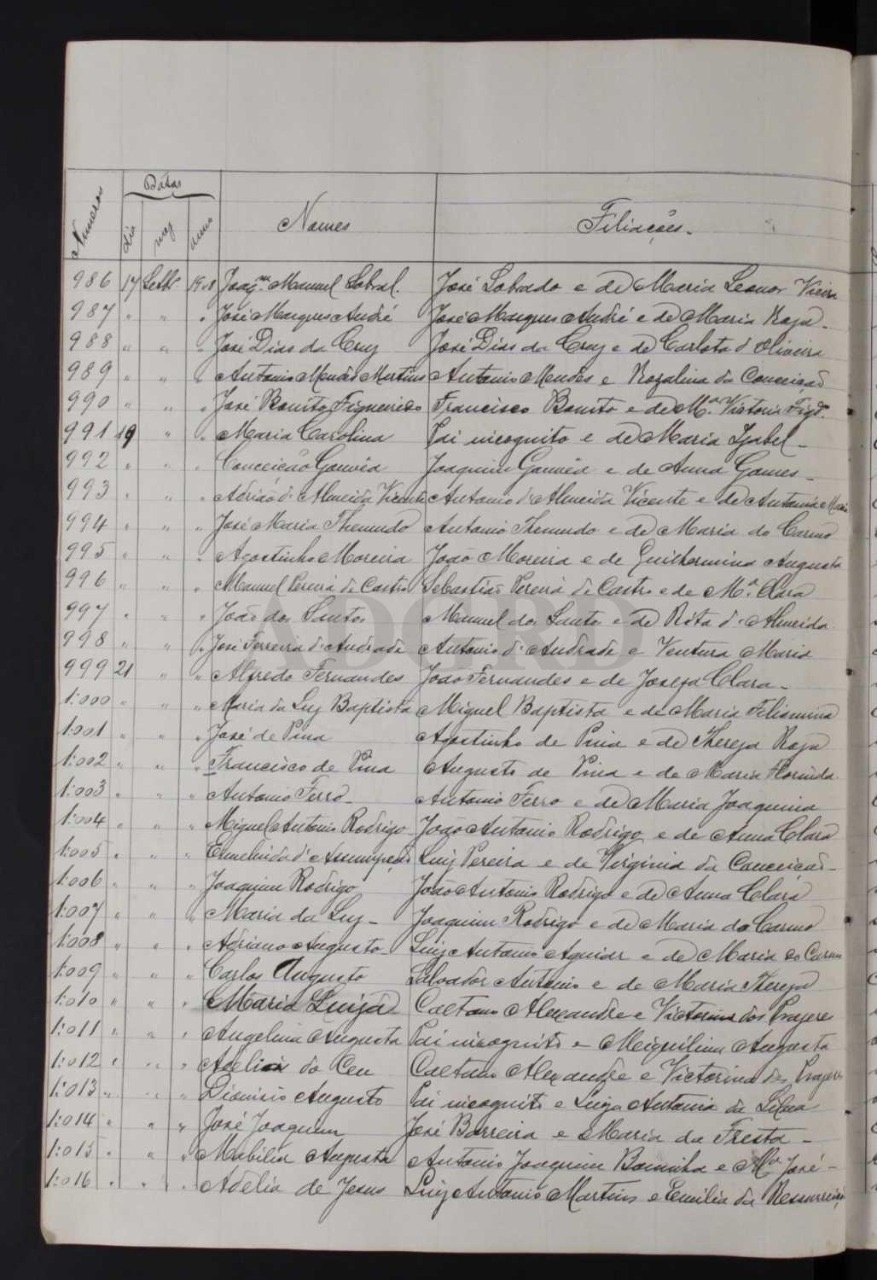 Numeros Datas Nomes Filiações.
dia mez anno
986 17 Setbr 1908 Joaqm Manuel Sobral. José Sobrado e de Maria Leonor Vieira
987 " " " José Marques André José Marques André e de Maria Roza.
988 " " " José Dias da Cruz José Dias da Cruz e de Carlota d'Oliveira
989 " " " Antonio Mendes Martins Antonio Mendes e Rozalina da Conceicão
990 " " " José Bonito Figueiredo Francisco Bonito e de Ma Victoria Figdo
991 19 " " Maria Carolina Pai incognito e de Maria Izabel -
992 " " " Conceicão Gouveia Joaquim Gouveia e de Anna Gomes -
993 " " " Adrião d'Almeida Vicente Antonio d'Almeida Vicente e de Antonia Maria
994 " " " José Maria Themudo Antonio Themudo e de Maria do Carmo
995 " " " Agostinho Moreira João Moreira e de Guilhermina Augusta
996 " " " Manuel Pereira de Castro Sebastião Pereira de Castro e de Ma Clara
997 " " " João dos Santos Manuel dos Santos e de Rita d'Almeida
998 " " " José Ferreira d'Andrade Antonio d'Andrade e Ventura Maria
999 21 " " Alfredo Fernandes João Fernandes e de Josefa Clara -
1:000 " " " Maria da Luz Baptista Miguel Baptista e de Maria Filismina
1:001 " " " José de Pina Agostinho de Pina e de Thereza Roza
1:002 " " " Francisco de Pina Augusto de Pina e de Maria Florinda
1:003 " " " Antonio Ferro - Antonio Ferro e de Maria Joaquina
1:004 " " " Miguel Antonio Rodrigo João Antonio Rodrigo e de Anna Clara
1:005 " " " d'Assumpção Luiz Pereira e de Virginia da Conceicão -
1:006 " " " Joaquim Rodrigo João Antonio Rodrigo e de Anna Clara
1:007 " " " Maria da Luz - Joaquim Rodrigo e de Maria do Carmo
1:008 " " " Adriano Augusto - Luiz Antonio Aguiar e de Maria do Carmo
1:009 " " " Carlos Augusto Salvador Antonio e de Maria Thereza
1:010 " " " Maria Luiza Caetano Alexandre e Victorina dos Prazeres
1:011 " " " Angelina Augusta Pai incognito e Miquilina Augusta
1:012 " " " Adelia do Ceu Caetano Alexandre e Victorina dos Prazeres
1:013 " " " Dionisio Augusto Pai incognito e Luiza Antonia da Silva
1:014 " " " José Joaquim José Barreira e Maria da Fresta -
1:015 " " " Mabilia Augusta Antonio Joaquim e Ma José -
1:016 " " " Adelia de Jesus Luiz Antonio Martins e Emilia da Ressurreição
ADGRD